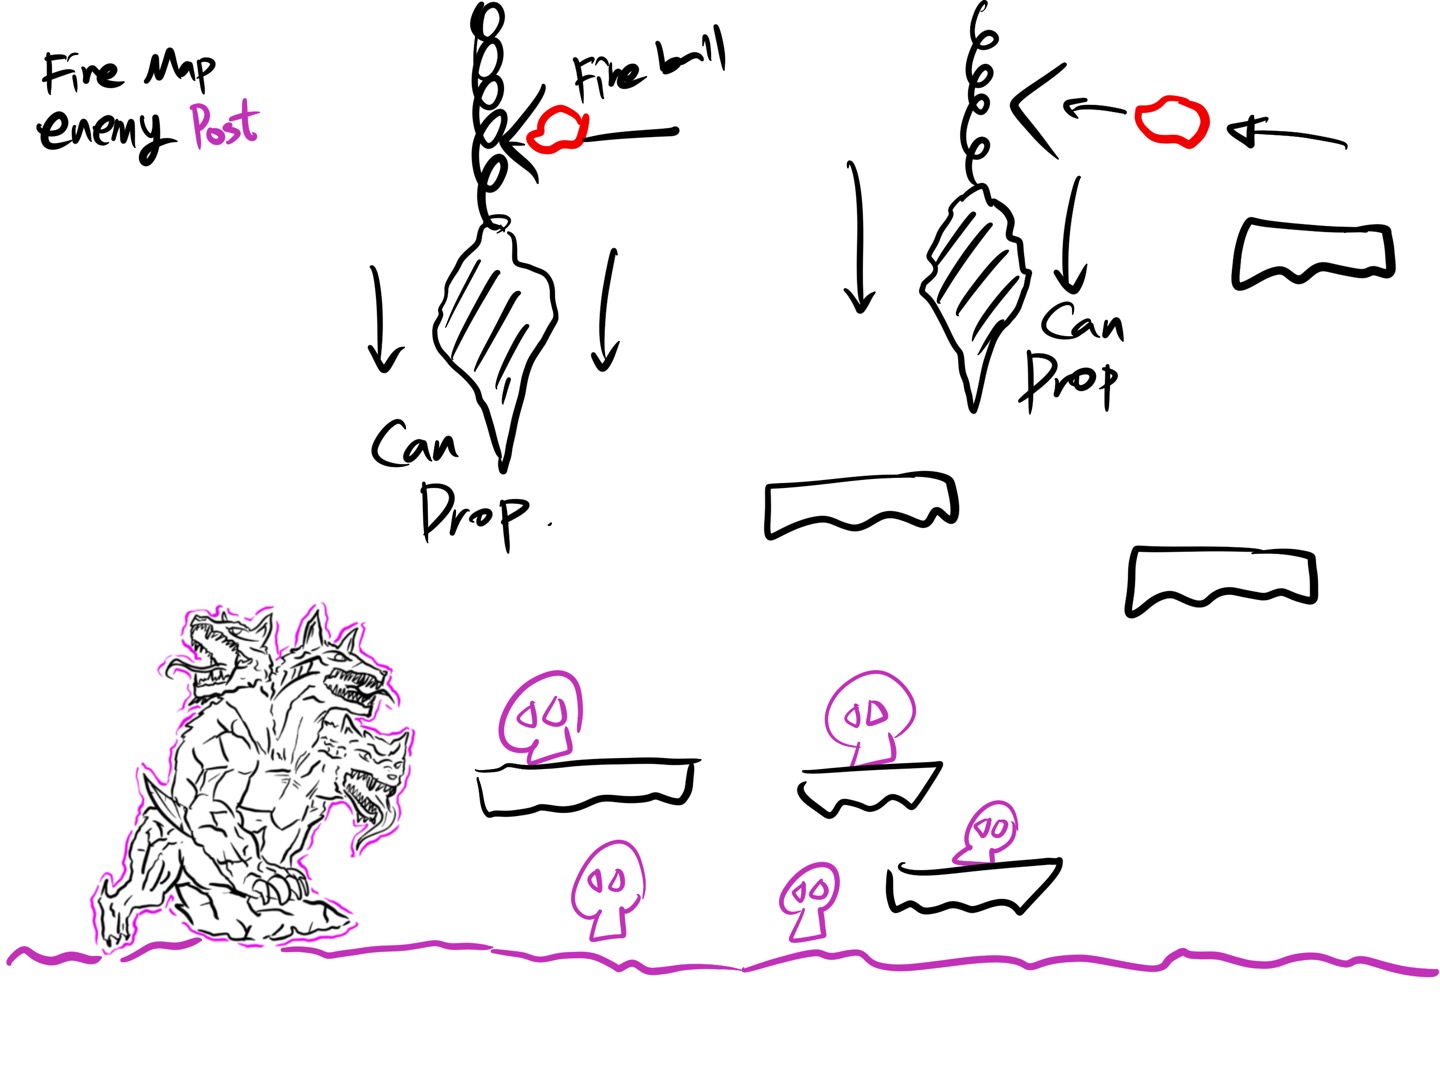 Fire Map
enemy Post
Fire ball
Can
Drop
Can
Drop.